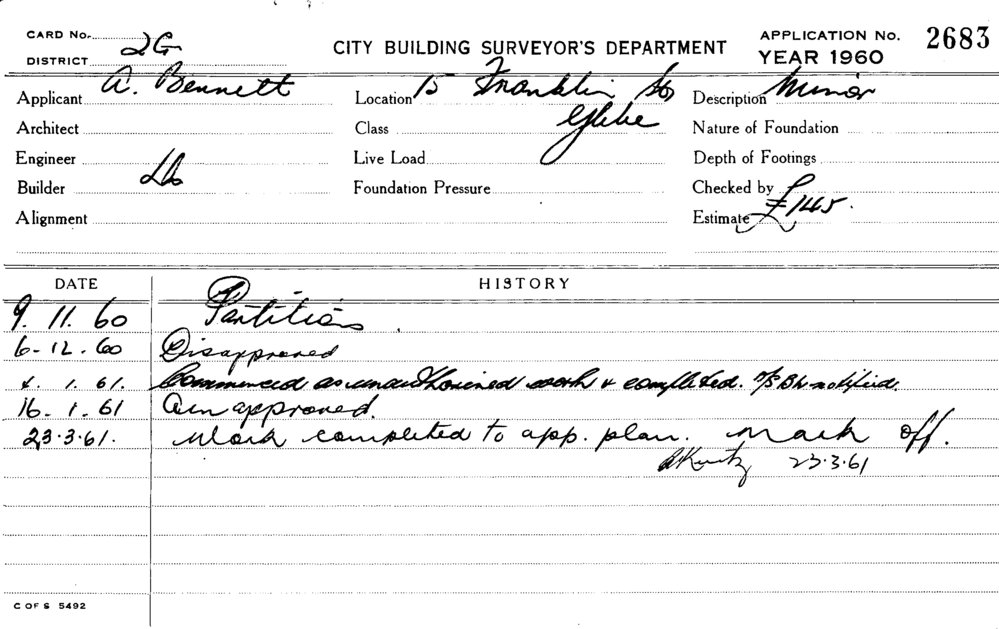 CARD No. 2G
DISTRICT
CITY BUILDING SURVEYOR'S DEPARTMENT
APPLICATION No. 2683
YEAR 1960
Applicant A. Bennett
Location 15 Franklin St
Glebe
Description Minor
Architect
Class
Nature of Foundation
Engineer
Live Load
Depth of Footings
Builder Do
Foundation Pressure
Checked by
Alignment
Estimate £145.
DATE HISTORY
9. 11. 60 Partitions
6-12-60 Disapproved
4. 1. 61. Commenced as unauthorised work & completed. notified.
16-1.61 approved.
23.3.61. Work completed to app. plan. Mark off.
23.3.61
C OF S 5492